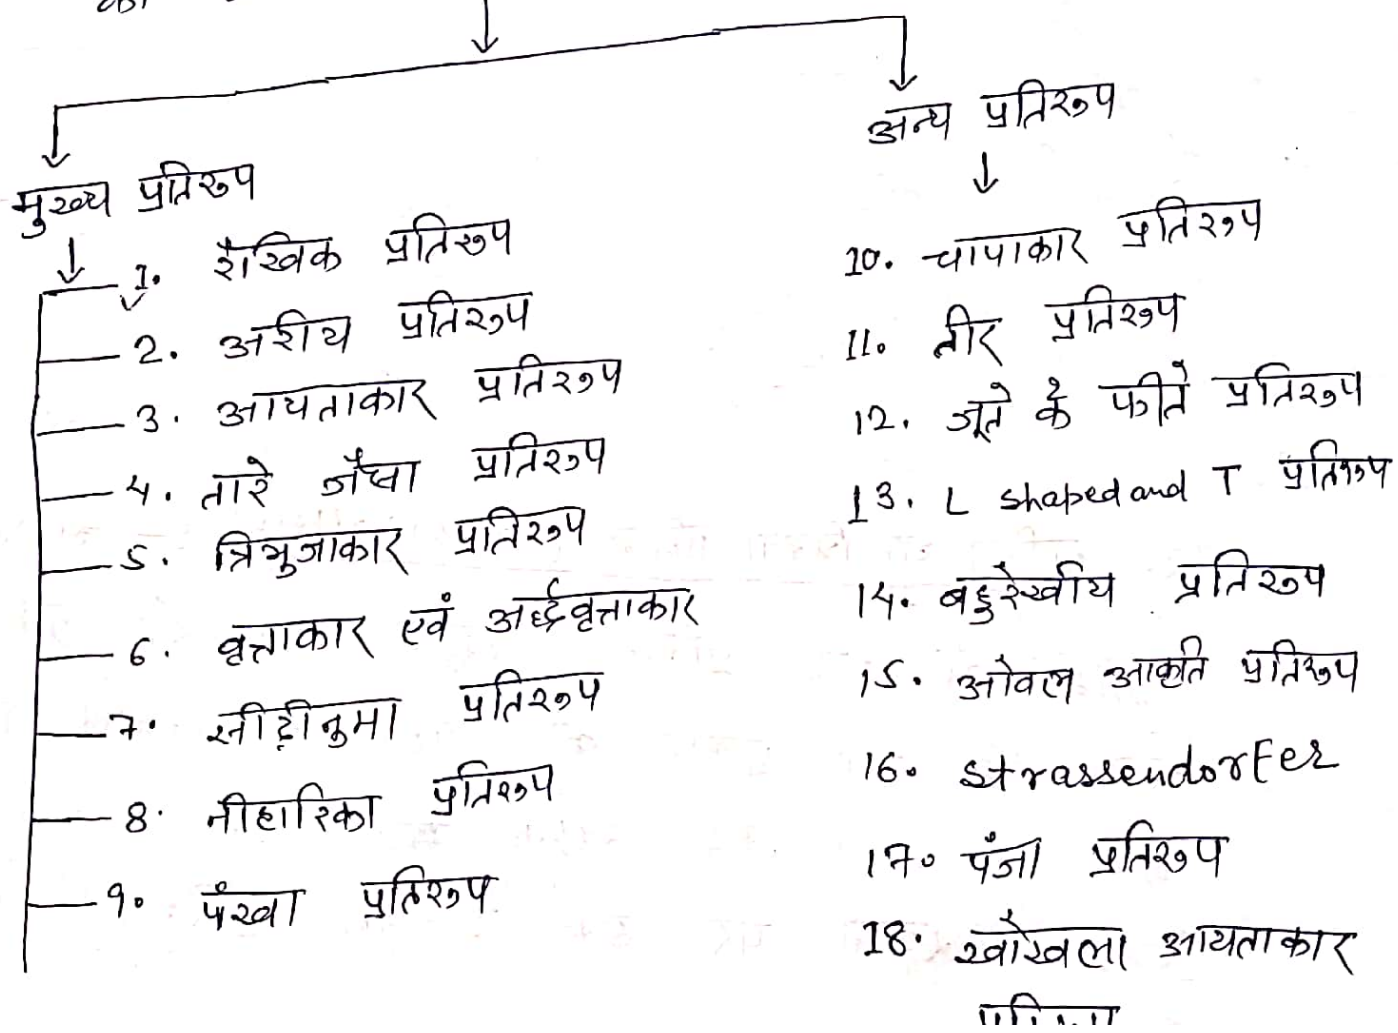 मुख्य प्रतिरूप
1. रैखिक प्रतिरूप
2. अरीय प्रतिरूप
3. आयताकार प्रतिरूप
4. तारे जैसा प्रतिरूप
5. त्रिभुजाकार प्रतिरूप
6. वृत्ताकार एवं अर्द्धवृत्ताकार
7. सीढ़ीनुमा प्रतिरूप
8. नीहारिका प्रतिरूप
9. पंखा प्रतिरूप
अन्य प्रतिरूप
10. चापाकार प्रतिरूप
11. तीर प्रतिरूप
12. जूते के फीते प्रतिरूप
13. L shaped and T प्रतिरूप
14. बहुरेखीय प्रतिरूप
15. ओवल आकृति प्रतिरूप
16. Strassendorfer
17. पंजा प्रतिरूप
18. खोखला आयताकार